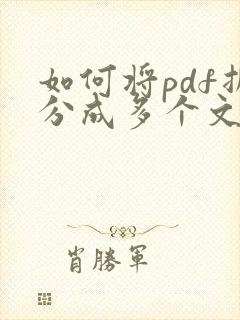 如何将pdf
分成多个文
肖勝軍